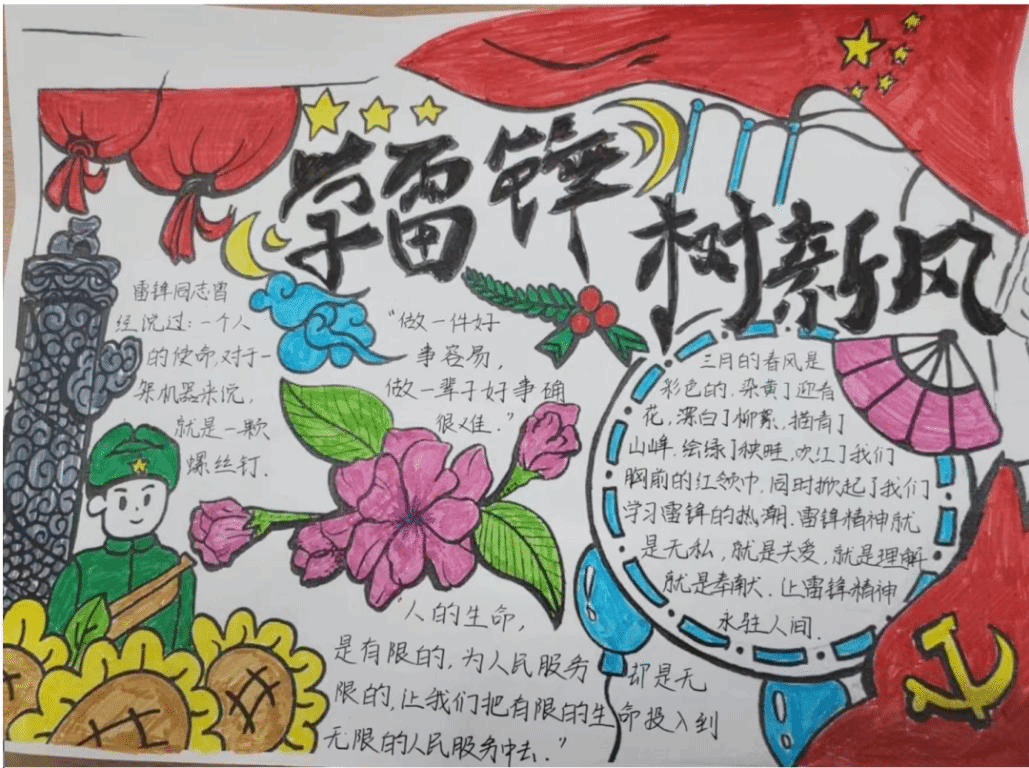 学雷锋
树新风
雷锋同志曾
经说过:一个人
的使命,对于一
架机器来说,
就是一颗
螺丝钉.
"做一件好
事容易,
做一辈子好事确
很难."
三月的春风是
彩色的.染黄了迎春
花,漂白了柳絮.描青了
山峰.绘绿了秧畦,吹红了我们
胸前的红领巾,同时掀起了我们
学习雷锋的热潮.雷锋精神就
是无私,就是关爱,就是理解
就是奉献.让雷锋精神
永驻人间.
"人的生命,
是有限的,为人民服务 却是无
限的,让我们把有限的生命投入到
无限的人民服务中去."